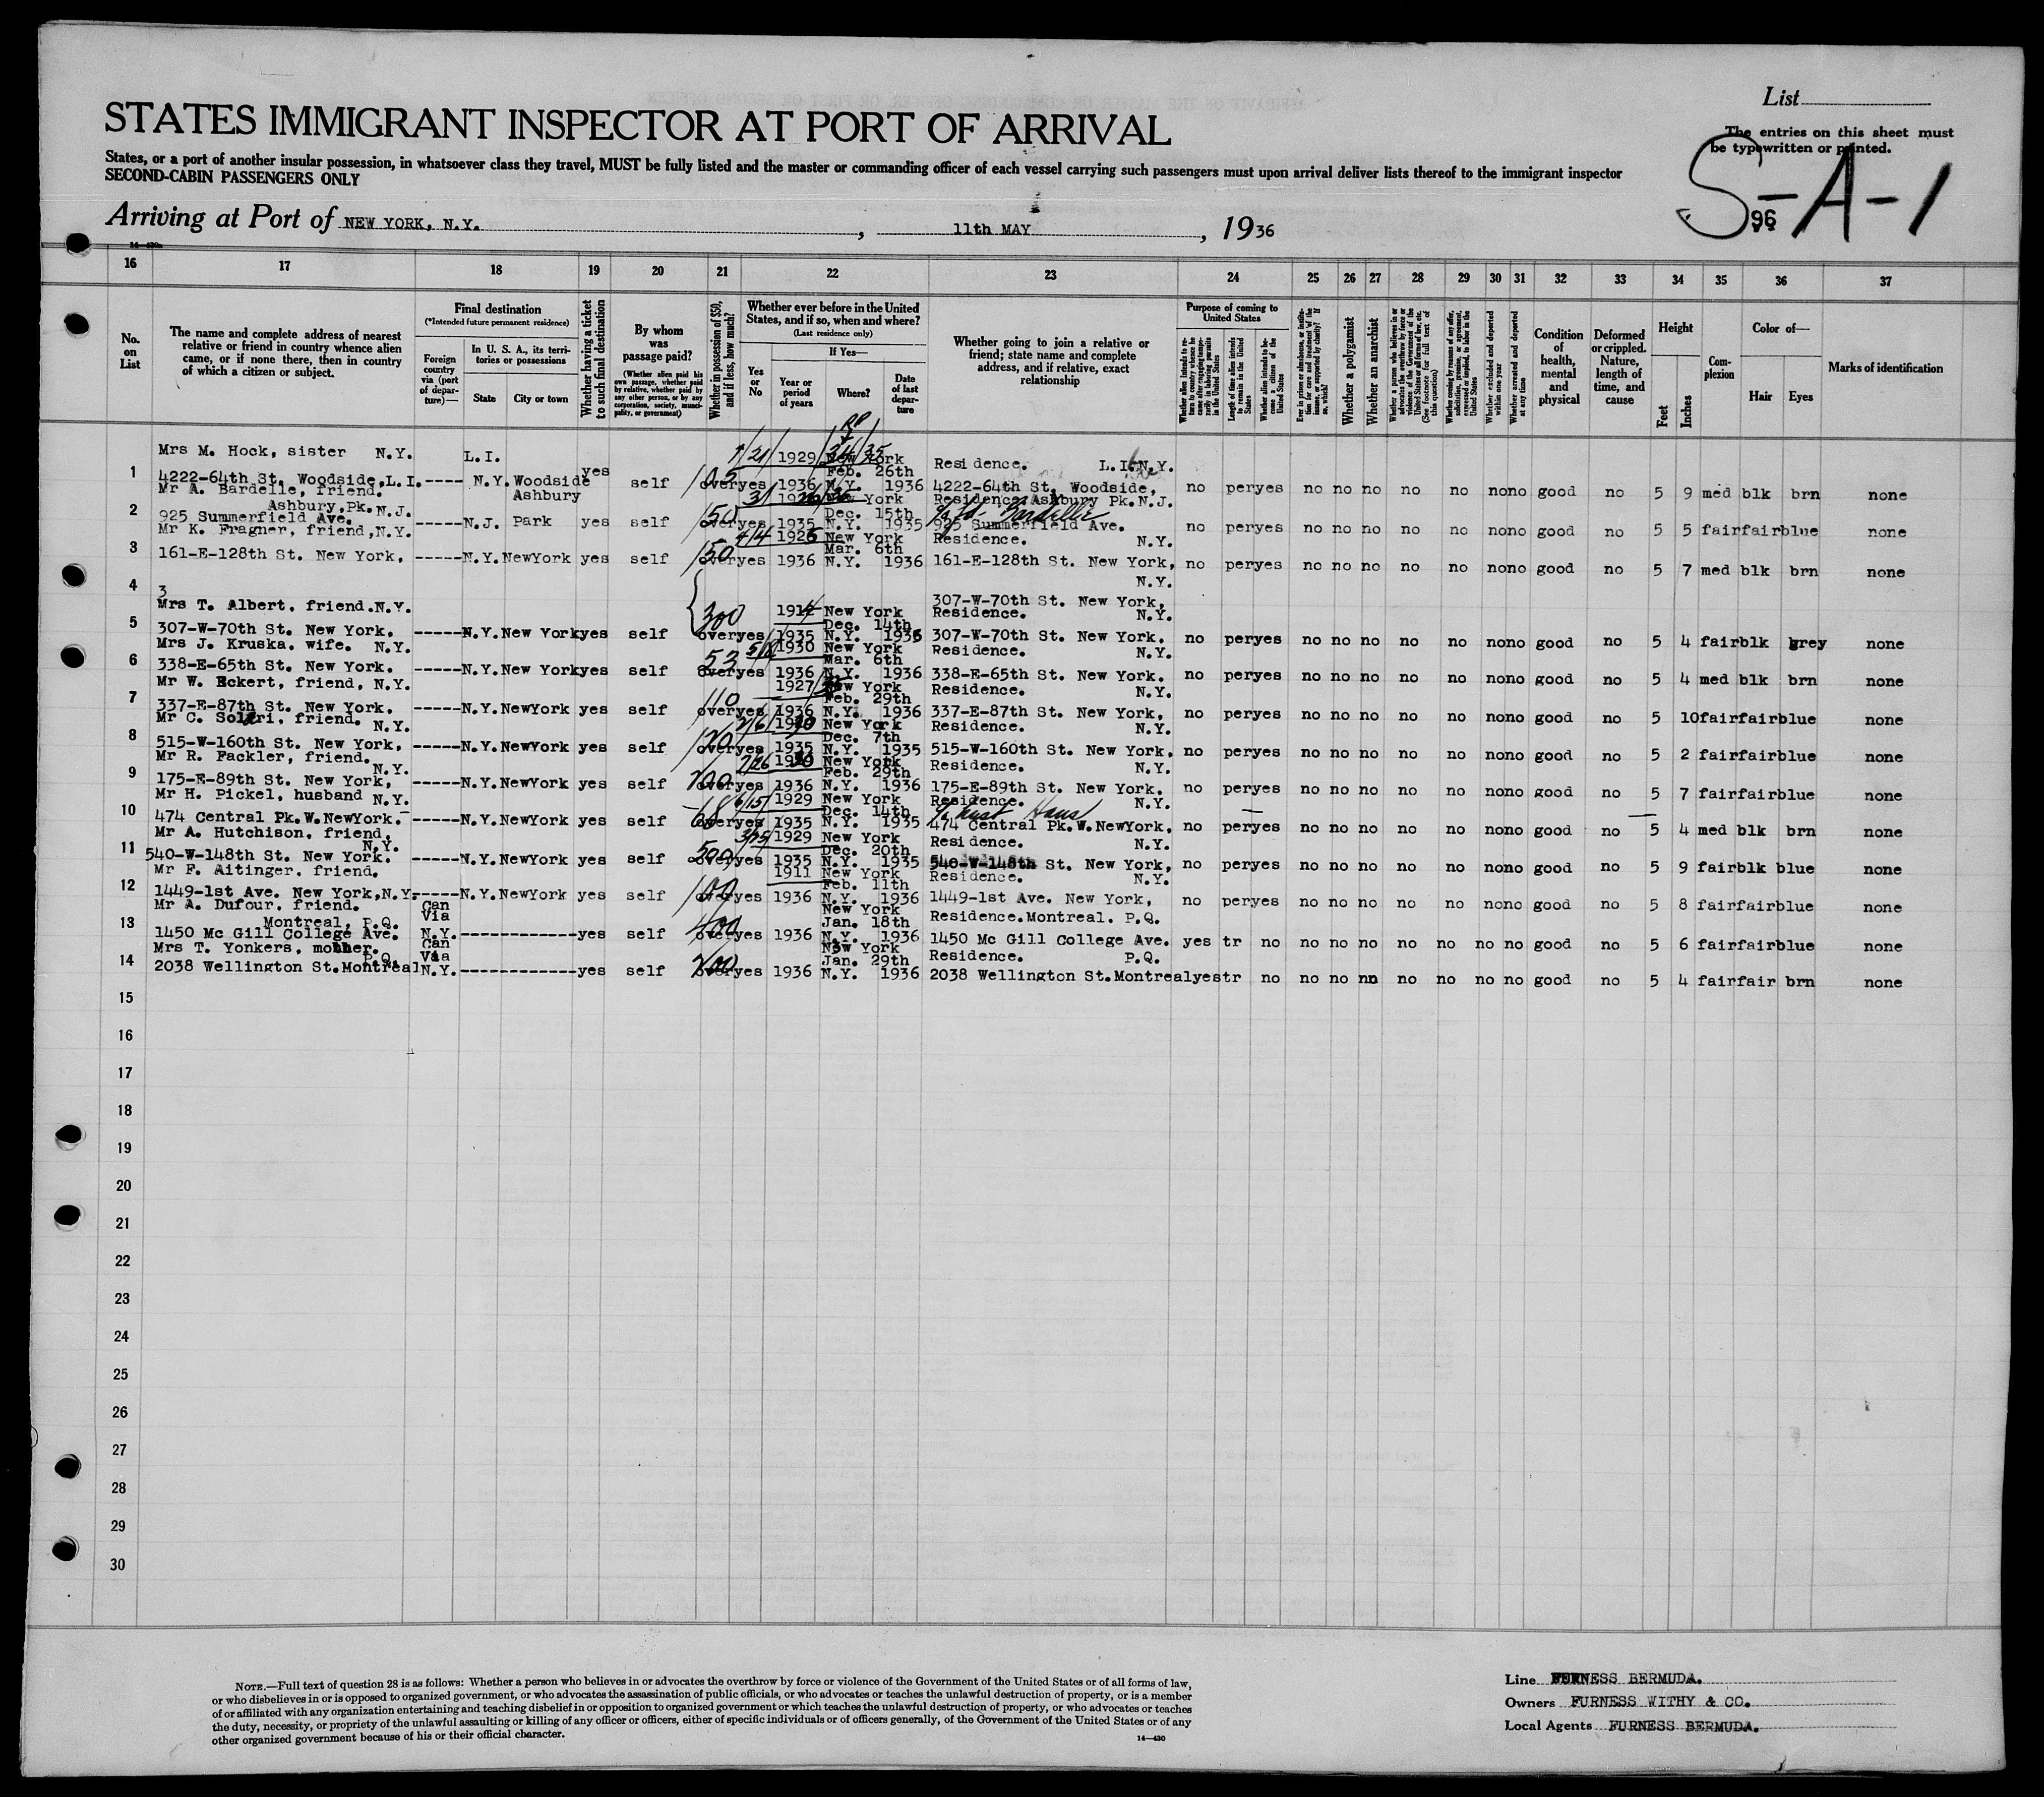 STATES IMMIGRANT INSPECTOR AT PORT OF ARRIVAL
List
The entries on this sheet must
be typewritten or printed.
States, or a port of another insular possession, in whatsoever class they travel, MUST be fully listed and the master or commanding officer of each vessel carrying such passengers must upon arrival deliver lists thereof to the immigrant inspector
SECOND-CABIN PASSENGERS ONLY
S-A-1
96
Arriving at Port of NEW YORK, N.Y. , 11th MAY , 1936
16 17 18 19 20 21 22 23 24 25 26 27 28 29 30 31 32 33 34 35 36 37
No. on List
The name and complete address of nearest relative or friend in country whence alien came, or if none there, then in country of which a citizen or subject.
Final destination
(*Intended future permanent residence)
Foreign country via (port of departure)—
In U. S. A., its territories or possessions
State
City or town
Whether having a ticket to such final destination
By whom was passage paid?
(Whether alien paid his own passage, whether paid by relative, whether paid by any other person, or by any corporation, society, municipality, or government)
Whether in possession of $50, and if less, how much?
Whether ever before in the United States, and if so, when and where?
(Last residence only)
Yes or No
If Yes—
Year or period of years
Where?
Date of last departure
Whether going to join a relative or friend; state name and complete address, and if relative, exact relationship
Purpose of coming to United States
Length of time alien intends to remain in the United States
Whether alien intends to become a citizen of the United States
Whether a polygamist
Whether an anarchist
Whether excluded and deported within one year
Whether arrested and deported at any time
Condition of health, mental and physical
Deformed or crippled. Nature, length of time, and cause
Height
Feet
Inches
Complexion
Color of—
Hair
Eyes
Marks of identification
Mrs M. Hock, sister N.Y. L.I. 1929 New York Residence. L.I.N.Y.
1 4222-64th St. Woodside,L.I.---- N.Y. Woodside yes self over yes 1936 N.Y. Feb. 26th 1936 4222-64th St. Woodside, no per yes no no no no no no no good no 5 9 med blk brn none
Mr A. Bardelle, friend. Ashbury,Pk.N.J. Ashbury New York Residence Ashbury Pk.N.J.
2 925 Summerfield Ave. -----N.J. Park yes self 150 over yes 1935 N.Y. Dec. 15th 1935 925 Summerfield Ave. no per yes no no no no no no no good no 5 5 fair fair blue none
Mr K. Fragner, friend,N.Y. 4/4 1926 New York Residence. N.Y.
3 161-E-128th St. New York, -----N.Y. NewYork yes self 150 over yes 1936 N.Y. Mar. 6th 1936 161-E-128th St. New York, no per yes no no no no no no no good no 5 7 med blk brn none
N.Y.
4 3
307-W-70th St. New York,
Mrs T. Albert, friend.N.Y. 300 New York Residence. N.Y.
5 307-W-70th St. New York, -----N.Y. New York yes self over yes 1935 N.Y. Dec. 14th 1935 307-W-70th St. New York. no per yes no no no no no no no good no 5 4 fair blk grey none
Mrs J. Kruska. wife. N.Y. 1930 New York Residence. N.Y.
6 338-E-65th St. New York. -----N.Y. New York yes self 53 over yes 1936 N.Y. Mar. 6th 1936 338-E-65th St. New York. no per yes no no no no no no no good no 5 4 med blk brn none
Mr W. Eckert, friend, N.Y. 1927 New York Residence. N.Y.
7 337-E-87th St. New York. -----N.Y. NewYork yes self 110 over yes 1936 N.Y. Feb. 29th 1936 337-E-87th St. New York, no per yes no no no no no no no good no 5 10 fair fair blue none
Mr C. , friend. N.Y. New York Residence. N.Y.
8 515-W-160th St. New York, -----N.Y. NewYork yes self over yes 1935 N.Y. Dec. 7th 1935 515-W-160th St. New York. no per yes no no no no no no no good no 5 2 fair fair blue none
Mr R. Fackler, friend. N.Y. 7/26 New York Residence. N.Y.
9 175-E-89th St. New York, -----N.Y. NewYork yes self over yes 1936 N.Y. Feb. 29th 1936 175-E-89th St. New York. no per yes no no no no no no no good no 5 7 fair fair blue none
Mr H. Pickel, husband N.Y. 6/15 1929 New York Residence. N.Y.
10 474 Central Pk.W.NewYork. -----N.Y. NewYork yes self 68 over yes 1935 N.Y. Dec. 14th 1935 474 Central Pk.W.NewYork. no per yes no no no no no no no good no 5 4 med blk brn none
Mr A. Hutchison, friend, N.Y. 1929 New York Residence. N.Y.
11 540-W-148th St. New York. -----N.Y. NewYork yes self 500 over yes 1935 N.Y. Dec. 20th 1935 540-W-148th St. New York, no per yes no no no no no no no good no 5 9 fair blk blue none
Mr F. Aitinger. friend. 1911 New York Residence. N.Y.
12 1449-1st Ave. New York,N.Y. -----N.Y. NewYork yes self 100 over yes 1936 N.Y. Feb. 11th 1936 1449-1st Ave. New York, no per yes no no no no no no no good no 5 8 fair fair blue none
Mr A. Dufour, friend. Montreal, P.Q. Can Via New York Residence.Montreal. P.Q.
13 1450 Mc Gill College Ave. N.Y.------------yes self over yes 1936 N.Y. Jan. 18th 1936 1450 Mc Gill College Ave. yes tr no no no no no no no no good no 5 6 fair fair blue none
Mrs T. Yonkers, mother. P.Q. Can Via New York Residence. P.Q.
14 2038 Wellington St.Montreal N.Y.-------------yes self 200 over yes 1936 N.Y. Jan. 29th 1936 2038 Wellington St.Montreal yes tr no no no nn no no no no good no 5 4 fair fair brn none
15
16
17
18
19
20
21
22
23
24
25
26
27
28
29
30
NOTE.—Full text of question 28 is as follows: Whether a person who believes in or advocates the overthrow by force or violence of the Government of the United States or of all forms of law,
or who disbelieves in or is opposed to organized government, or who advocates the assassination of public officials, or who advocates or teaches the unlawful destruction of property, or is a member
of or affiliated with any organization entertaining and teaching disbelief in or opposition to organized government or which teaches the unlawful destruction of property, or who advocates or teaches
the duty, necessity, or propriety of the unlawful assaulting or killing of any officer or officers, either of specific individuals or of officers generally, of the Government of the United States or of any
other organized government because of his or their official character.
14—430
Line FURNESS BERMUDA.
Owners FURNESS WITHY & CO.
Local Agents FURNESS BERMUDA.